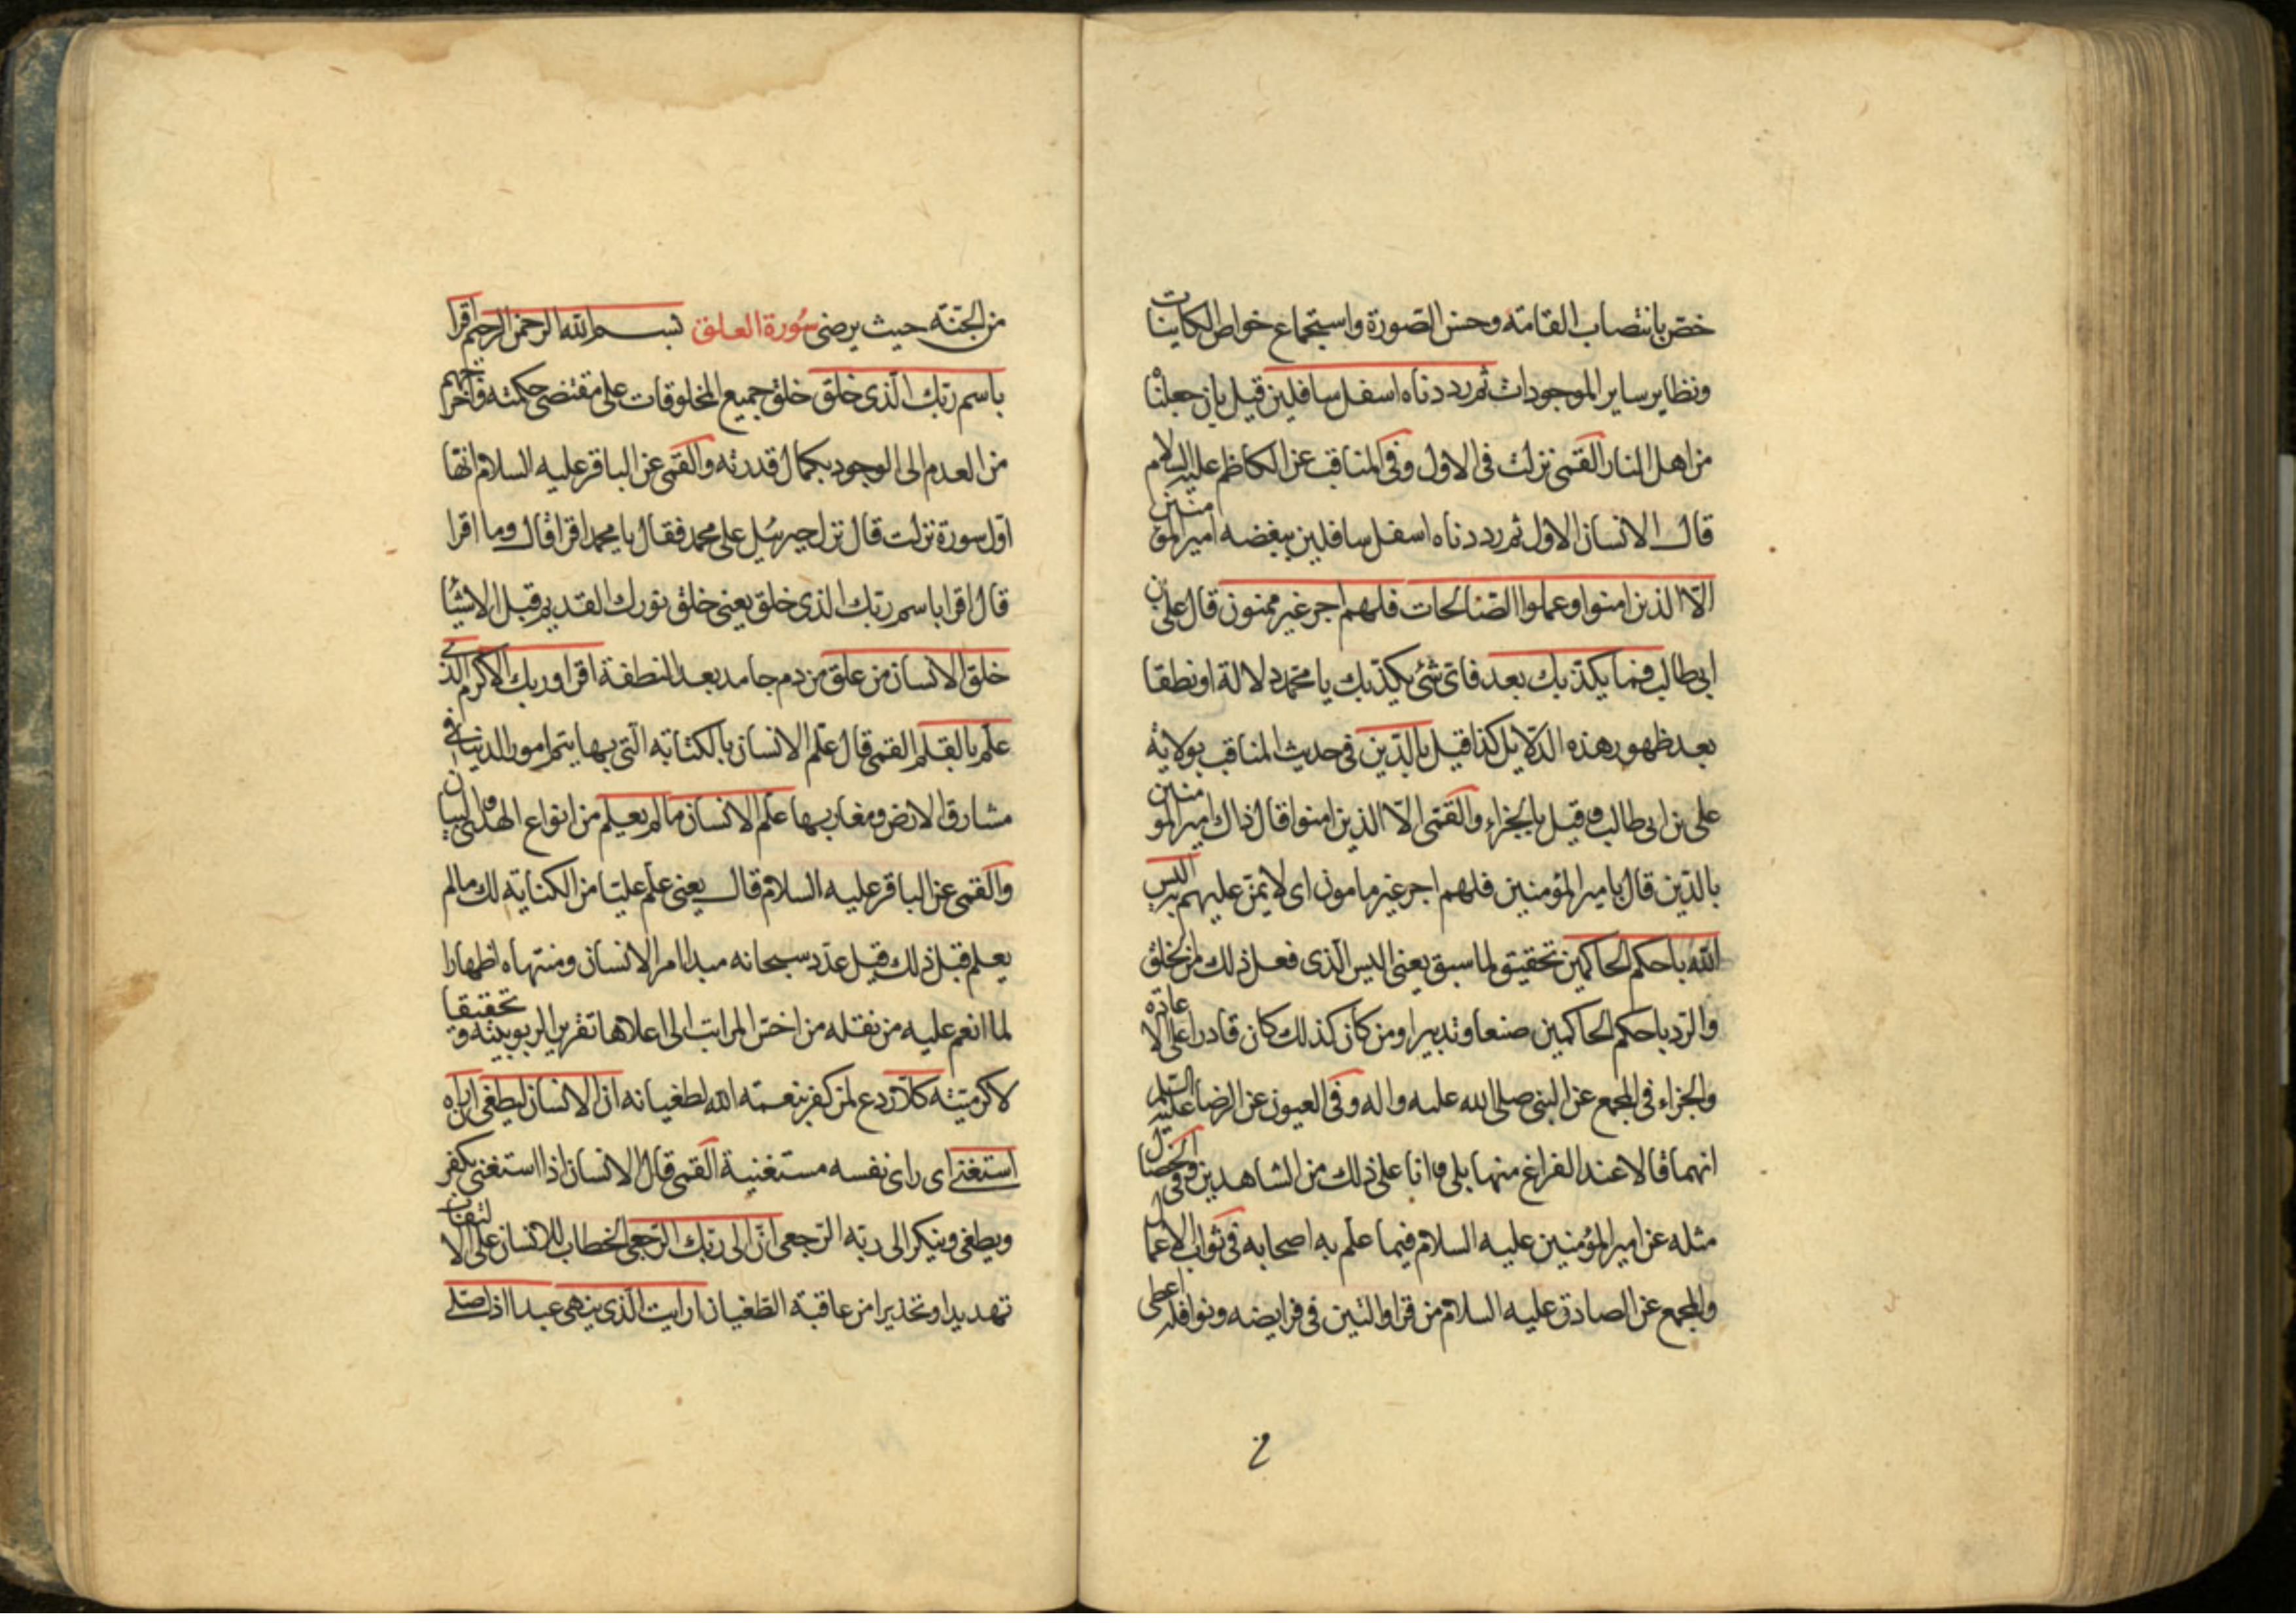 خص بانتصاب القامة وحسن الصورة واستجماع خواص الكاينات
ونظاير ساير الموجودات ثم رددناه اسفل سافلين قيل بان جعلنا
من اهل النار القمى نزلت فى الاول وفى المناقب عن الكاظم عليه السلام
قال الانسان الاول ثم رددناه اسفل سافلين ببغضه امير المومنين
الا الذين امنوا وعملوا الصالحات فلهم اجر غير ممنون قال على بن
ابى طالب فما يكذبك بعد فاى شئ يكذبك يا محمد دلالة او نطقا
بعد ظهور هذه الدلايل كذا قيل بالدين فى حديث المناقب بولاية
على بن ابى طالب وقيل بالجزاء والقمى الا الذين امنوا قال ذاك امير المومنين
بالدين قال بامير المؤمنين فلهم اجر غير مامون اى لا يمن عليهم به اليس
الله باحكم الحاكمين تحقيق لما سبق يعنى اليس الذى فعل ذلك من الخلق
والرد باحكم الحاكمين صنعا وتدبيرا ومن كان كذلك كان قادرا على الاعادة
والجزاء فى المجمع عن النبى صلى الله عليه واله وفى العيون عن الرضا عليه السلم
انهما قالا عند الفراغ منها بلى وانا على ذلك من الشاهدين وفى الخصال
مثله عن امير المؤمنين عليه السلام فيما علم به اصحابه فى ثواب الاعمال
والمجمع عن الصادق عليه السلام من قرا والتين فى فرايضه ونوافله اعطى
من الجنة حيث يرضى سورة العلق بسم الله الرحمن الرحيم اقرا
باسم ربك الذى خلق خلق جميع المخلوقات على مقتضى حكمته واخرجهم
من العدم الى الوجود بكمال قدرته والقمى عن الباقر عليه السلام انها
اول سورة نزلت قال نزل جبرئيل على محمد فقال يا محمد اقرا قال وما اقرا
قال اقرا باسم ربك الذى خلق يعنى خلق نورك القديم قبل الاشيا
خلق الانسان من علق من دم جامد بعد النطفة اقرا وربك الاكرم الذى
علم بالقلم القمى قال علم الانسان بالكتابة التى بها يتم امور الدنيا فى
مشارق الارض ومغاربها علم الانسان ما لم يعلم من انواع الهدى والبيان
والقمى عن الباقر عليه السلام قال يعنى علم عليا من الكتابة لك ما لم
يعلم قبل ذلك قيل عدد سبحانه مبدا امر الانسان ومنتهاه اظهارا
لما انعم عليه من نقله من اخس المراتب الى اعلاها تقريرا لربوبيته وتحقيقا
لاكرميته كلا ردع لمن كفر بنعمة الله لطغيانه ان الانسان ليطغى ان راه
استغنى اى راى نفسه مستغنية القمى قال الانسان اذا استغنى يكفر
ويطغى وينكر الى ربه الرجعى ان الى ربك الرجعى الخطاب للانسان على الالتفات
تهديدا وتحذيرا من عاقبة الطغيان ارايت الذى ينهى عبدا اذا صلى